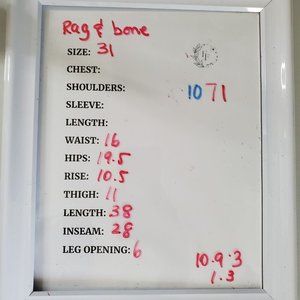 Rag & bone
SIZE: 31
CHEST:
SHOULDERS: 1071
SLEEVE:
LENGTH:
WAIST: 16
HIPS: 19.5
RISE: 10.5
THIGH: 11
LENGTH: 38
INSEAM: 28
LEG OPENING: 6
10.9.3
1.3